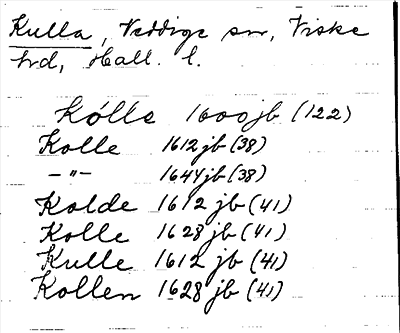 Kulla, Veddige sn, Viske
hd, Hall. l.
Kólle 1600jb (122)
Kolle 1612jb (38)
-"- 1644jb (38)
Kolde 1612 jb (41)
Kolle 1628 jb (41)
Kulle 1612 jb (41)
Kollen 1628 jb (41)